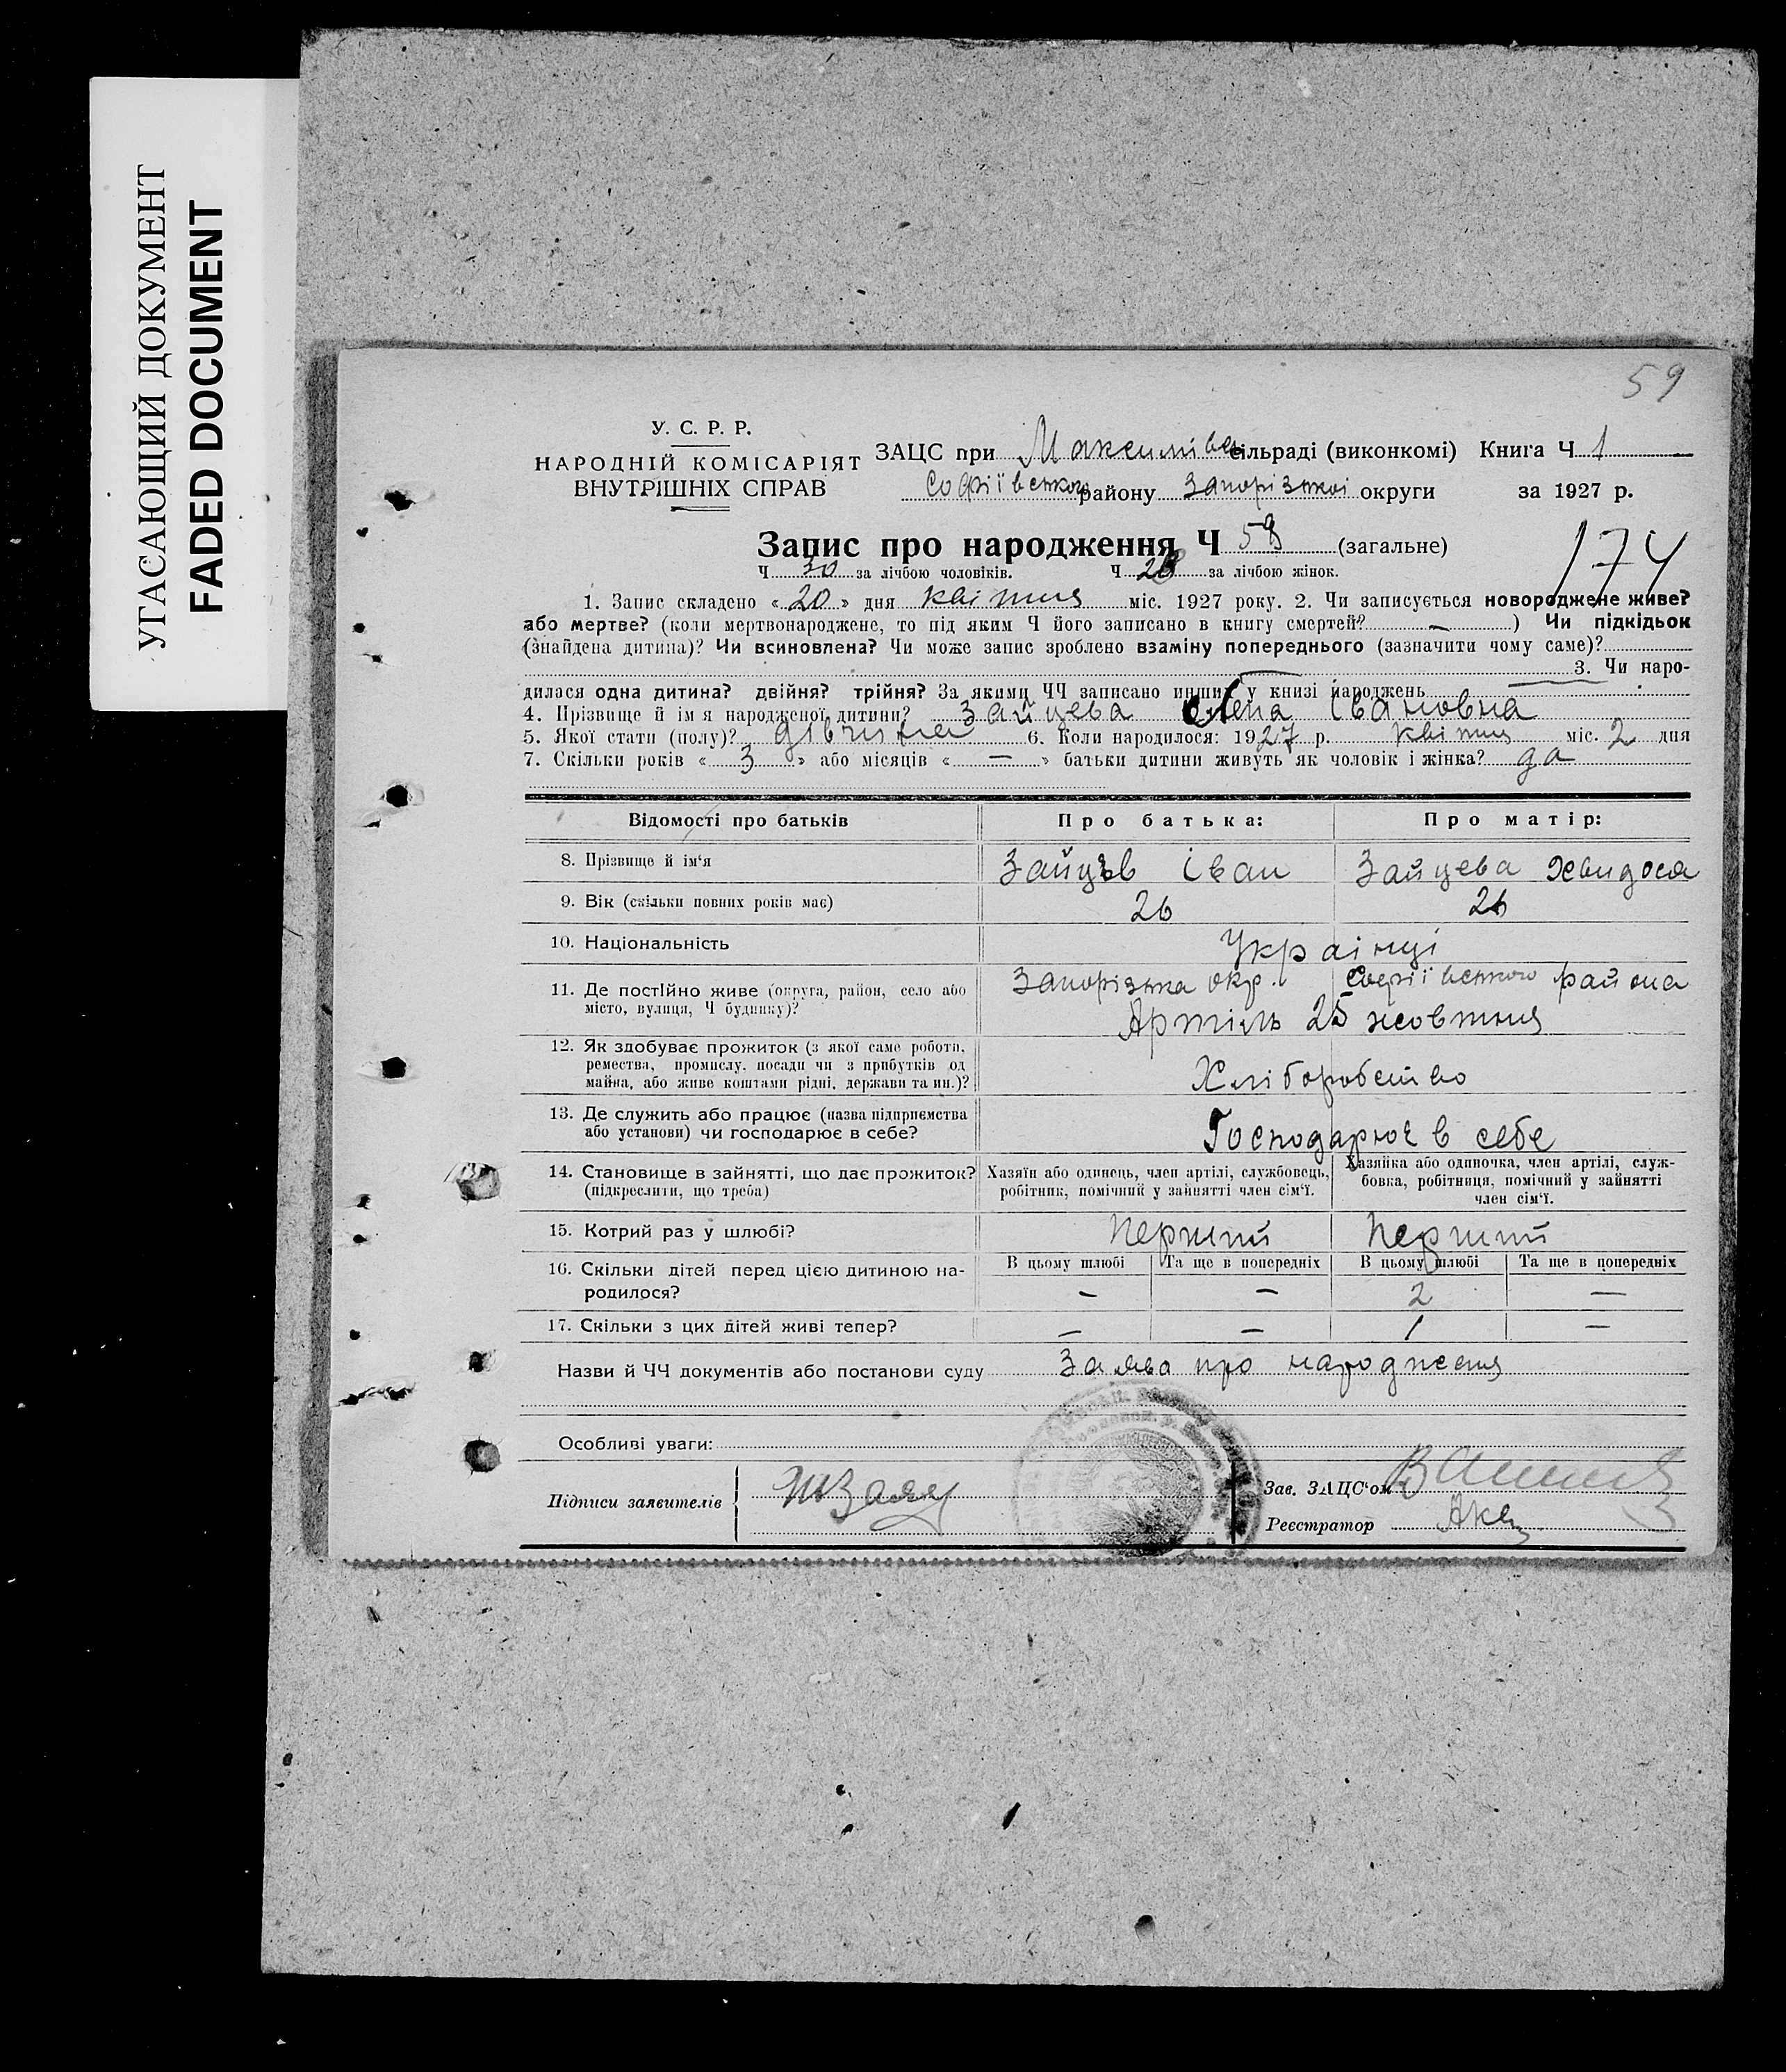 УГАСАЮЩИЙ ДОКУМЕНТ
FADED DOCUMENT
59
У. С. Р. Р.
НАРОДНІЙ КОМІСАРІЯТ
ВНУТРІШНІХ СПРАВ
ЗАЦС при Максимівс сільраді (виконкомі) Книга Ч 1
Софіївського району Запорізької округи за 1927 р.
Запис про народження Ч 59 (загальне)
174
Ч 30 за лічбою чоловіків. Ч за лічбою жінок.
1. Запис складено « 20 » дня квітня міс. 1927 року. 2. Чи записується новороджене живе?
або мертве? (коли мертвонароджене, то під яким Ч його записано в книгу смертей? — ) Чи підкідьок
(знайдена дитина)? Чи всиновлена? Чи може запис зроблено взаміну попереднього (зазначити чому саме)?
3. Чи наро-
дилася одна дитина? двійня? трійня? За якими ЧЧ записано инших у книзі народжень
4. Прізвище й ім'я народженої дитини? Зайцева Олена Івановна
5. Якої стати (полу)? 6. Коли народилося: 1927 р. квітня міс. 2 дня
7. Скільки років « 3 » або місяців « — » батьки дитини живуть як чоловік і жінка? да
Відомості про батьків Про батька: Про матір:
8. Прізвище й ім'я Зайцев Іван Зайцева Хвидося
9. Вік (скільки повних років має) 26 26
10. Національність Українці
11. Де постійно живе (округа, район, село або місто, вулиця, Ч будинку)? Запорізька окр. Софіївського района
Артіль 25 жовтня
12. Як здобуває прожиток (з якої саме роботи,
ремества, промислу, посади чи з прибутків од
майна, або живе коштами рідні, держави та ин.)? Хліборобство
13. Де служить або працює (назва підприємства
або установи) чи господарює в себе? Господарює в себе
14. Становище в зайнятті, що дає прожиток?
(підкреслити, що треба)
Хазяїн або одинець, член артілі, службовець,
робітник, помічний у зайнятті член сім'ї.
Хазяйка або одиночка, член артілі, служ-
бовка, робітниця, помічний у зайнятті
член сім'ї.
15. Котрий раз у шлюбі? Перший Перший
16. Скільки дітей перед цією дитиною на-
родилося?
В цьому шлюбі Та ще в попередніх В цьому шлюбі Та ще в попередніх
— — 2 —
17. Скільки з цих дітей живі тепер? — — 1 —
Назви й ЧЧ документів або постанови суду Заява про народження
Особливі уваги:
Підписи заявителів
Зав. ЗАЦС'ом
Реєстратор